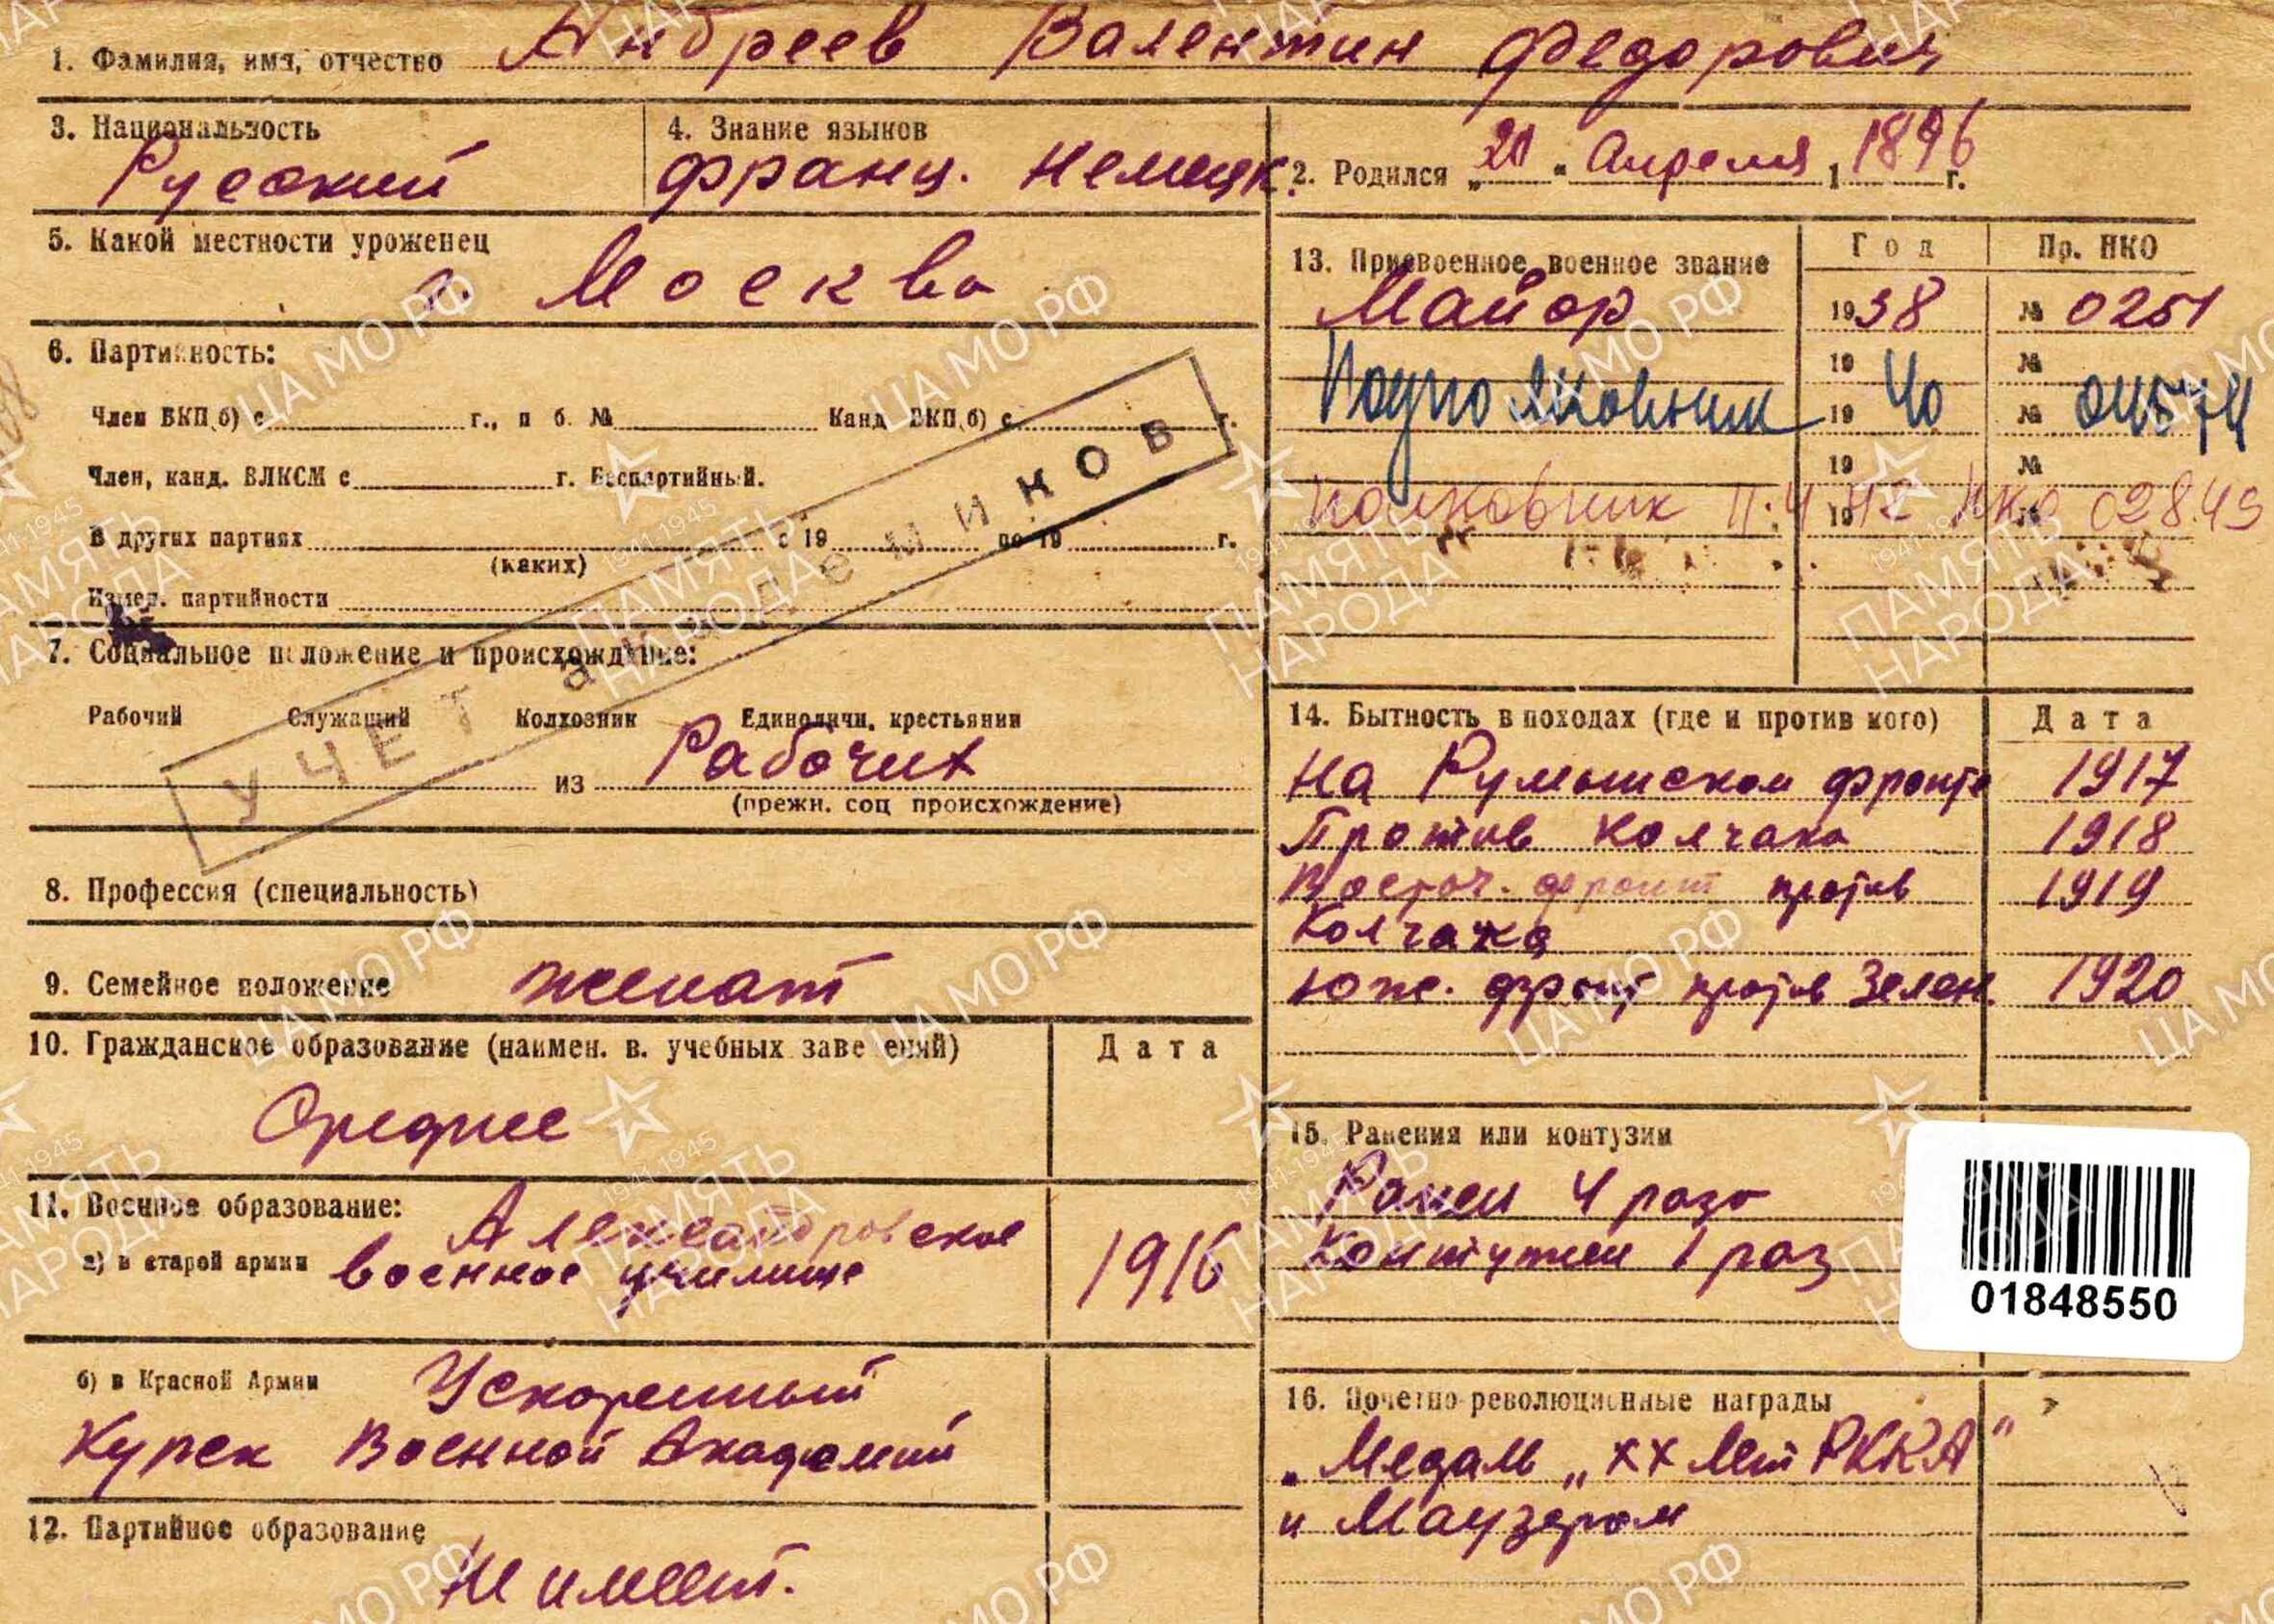 1. Фамилия, имя, отчество Андреев Валентин Федорович
3. Национальность Русский
4. Знание языков франц. немецк.
2. Родился „20“ Апреля 1896 г.
5. Какой местности уроженец г. Москва
6. Партийность:
Член ВКП(б) с г., п б. № Канд ВКП(б) с г.
Член, канд. ВЛКСМ с г. Беспартийный.
В других партиях с 19 по 19 г.
(каких)
Измен. партийности
УЧЕТ академиков
7. Социальное положение и происхождение:
Рабочий Служащий Колхозник Единоличн. крестьянин
из Рабочих
(прежн. соц происхождение)
8. Профессия (специальность)
9. Семейное положение женат
10. Гражданское образование (наимен. в. учебных заведений) Дата
Среднее
11. Военное образование:
а) в старой армии Александровское
военное училище 1916
б) в Красной Армии Ускоренный
Курск Военной Академии
12. Партийное образование
Не имеет.
13. Присвоенное военное звание Год Пр. НКО
Майор 1938 № 0251
19 №
Подполковник 19 40 № 04574
19 №
Полковник 11.4.42 НКО 02849
14. Бытность в походах (где и против кого) Дата
На Румынском фронте 1917
Против Колчака 1918
Восточ. фронт против 1919
Колчака
Юж. фронт против Зелен. 1920
15. Ранения или контузии
Ранен 4 раза
Контужен 1 раз
01848550
16. Почетно-революционные награды
„Медаль „XX лет РККА"
и Маузером
ЦА МО РФ
1941-1945
ПАМЯТЬ
НАРОДА